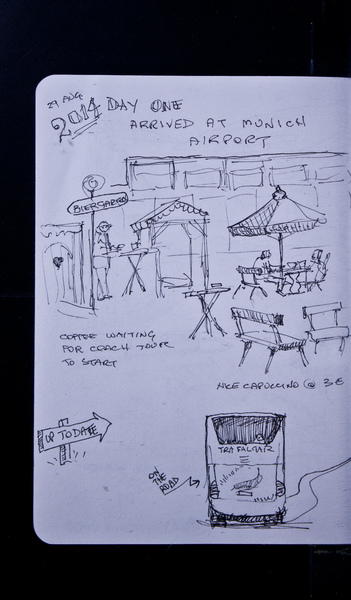 29 AUG
2014 DAY ONE
ARRIVED AT MUNICH
AIRPORT
BIERGARTEN
COFFEE WAITING
FOR COACH TOUR
TO START
NICE CAPUCCINO @ 3€
UP TO DATE
ON
THE
ROAD
TRAFALGAR